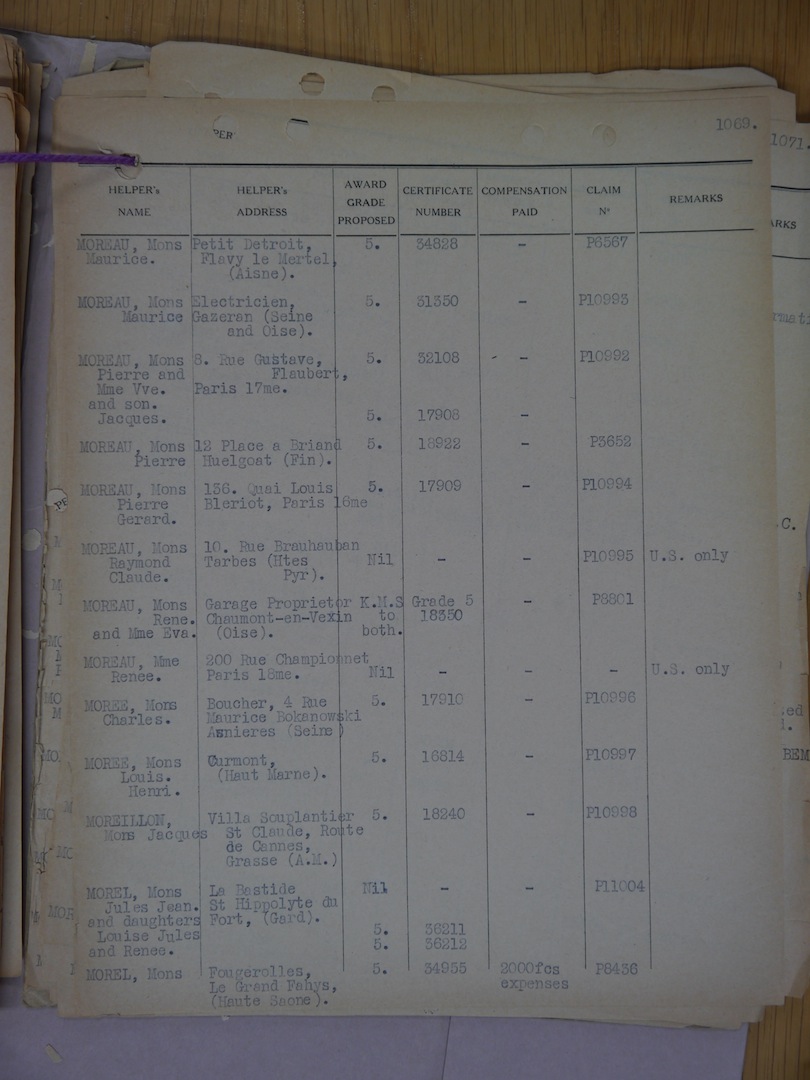 PER
1069.
1071.
HELPER's NAME
HELPER's ADDRESS
AWARD GRADE PROPOSED
CERTIFICATE NUMBER
COMPENSATION PAID
CLAIM Nº
REMARKS
ARKS
MOREAU, Mons Petit Detroit, 5. 34828 - P6567
Maurice. Flavy le Mertel,
(Aisne).
MOREAU, Mons Electricien, 5. 31350 - P10993
Maurice Gazeran (Seine
and Oise).
MOREAU, Mons 8. Rue Gustave, 5. 32108 - P10992
Pierre and Flaubert,
Mme Vve. Paris 17me.
and son.
Jacques. 5. 17908 -
MOREAU, Mons 12 Place a Briand 5. 18922 - P3652
Pierre Huelgoat (Fin).
MOREAU, Mons 136. Quai Louis 5. 17909 - P10994
Pierre Bleriot, Paris 16me
Gerard.
MOREAU, Mons 10. Rue Brauhauban
Raymond Tarbes (Htes Nil - - P10995 U.S. only
Claude. Pyr).
MOREAU, Mons Garage Proprietor K.M.S Grade 5 - P8801
Rene. Chaumont-en-Vexin to 18350
and Mme Eva. (Oise). both.
MOREAU, Mme 200 Rue Championnet
Renee. Paris 18me. Nil - - - U.S. only
MOREE, Mons Boucher, 4 Rue 5. 17910 - P10996
Charles. Maurice Bokanowski
Asnieres (Seine)
MOREE, Mons Curmont, 5. 16814 - P10997
Louis. (Haut Marne).
Henri.
MOREILLON, Villa Souplantier 5. 18240 - P10998
Mons Jacques St Claude, Route
de Cannes,
Grasse (A.M.)
MOREL, Mons La Bastide Nil - - P11004
Jules Jean. St Hippolyte du
and daughters Fort, (Gard).
Louise Jules 5. 36211
and Renee. 5. 36212
MOREL, Mons Fougerolles, 5. 34955 2000fcs P8436
Le Grand Fahys, expenses
(Haute Saone).